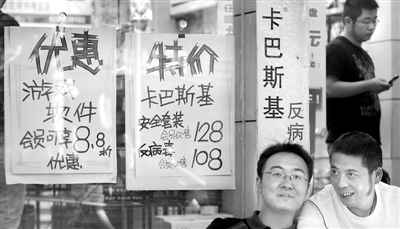 优惠
游戏
软件
会员可享8.8折
优惠
特价
卡巴斯基
安全套装 128
会员价售
反病毒 108
卡巴斯基
反病